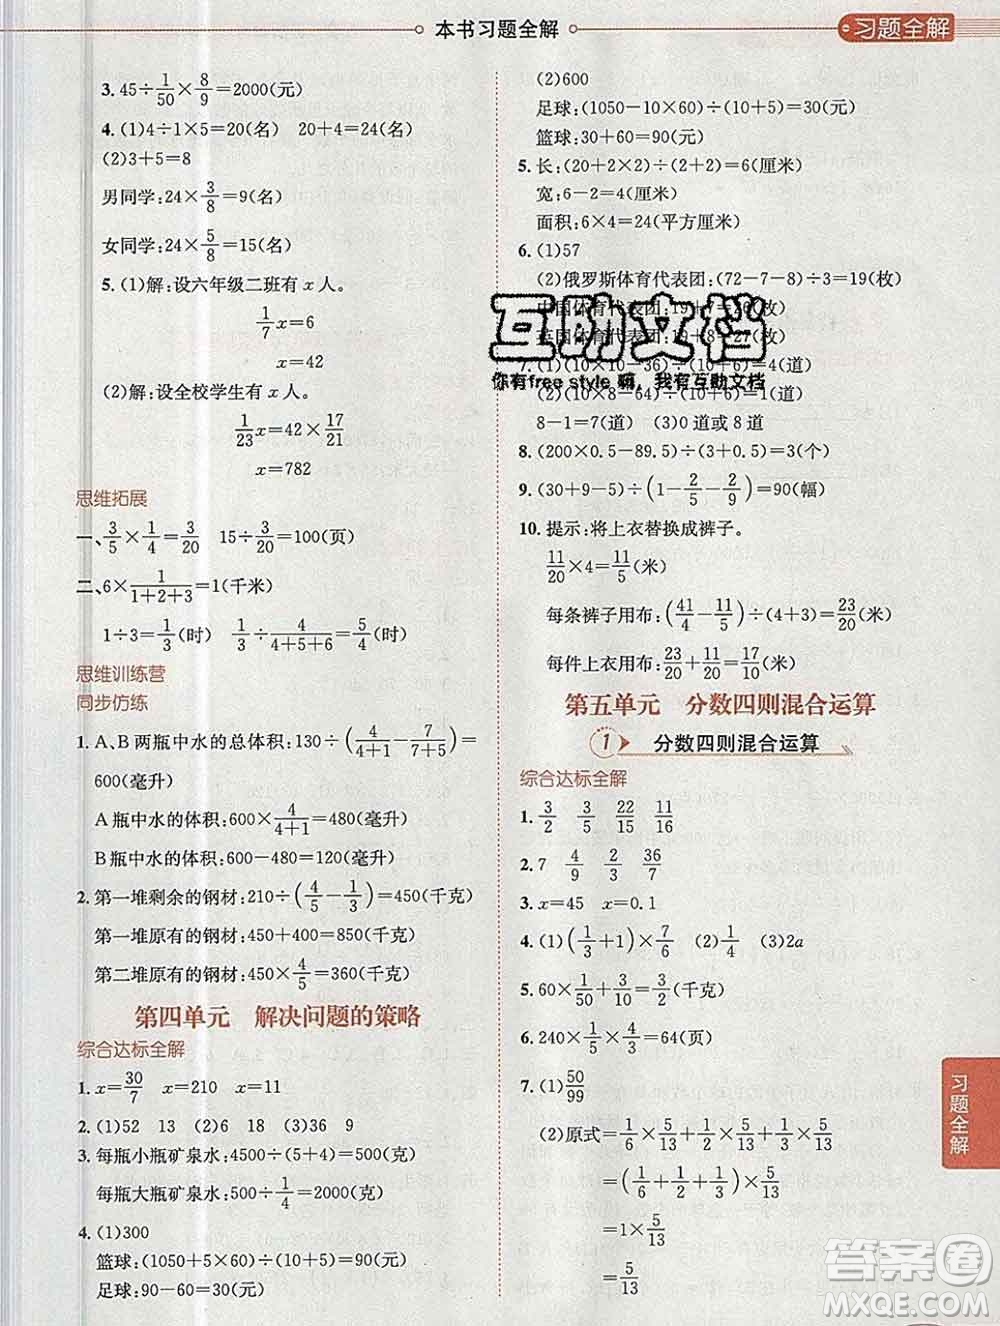 本书习题全解
习题全解
3. 45÷1/50×8/9=2000(元)
4. (1)4÷1×5=20(名) 20+4=24(名)
(2)3+5=8
男同学:24×3/8=9(名)
女同学:24×5/8=15(名)
5. (1)解:设六年级二班有x人。
1/7x=6
x=42
(2)解:设全校学生有x人。
1/23x=42×17/21
x=782
思维拓展
一、3/5×1/4=3/20 15÷3/20=100(页)
二、6×1/(1+2+3)=1(千米)
1÷3=1/3(时) 1/3÷4/(4+5+6)=5/4(时)
思维训练营
同步仿练
1. A、B两瓶中水的总体积:130÷(4/(4+1)-7/(7+5))=
600(毫升)
A瓶中水的体积:600×4/(4+1)=480(毫升)
B瓶中水的体积:600-480=120(毫升)
2. 第一堆剩余的钢材:210÷(4/5-1/3)=450(千克)
第一堆原有的钢材:450+400=850(千克)
第二堆原有的钢材:450×4/5=360(千克)
第四单元 解决问题的策略
综合达标全解
1. x=30/7 x=210 x=11
2. (1)52 13 (2)6 18 (3)36 9
3. 每瓶小瓶矿泉水:4500÷(5+4)=500(毫升)
每瓶大瓶矿泉水:500÷1/4=2000(毫升)
4. (1)300
篮球:(1050+5×60)÷(10+5)=90(元)
足球:90-60=30(元)
(2)600
足球:(1050-10×60)÷(10+5)=30(元)
篮球:30+60=90(元)
5. 长:(20+2×2)÷(2+2)=6(厘米)
宽:6-2=4(厘米)
面积:6×4=24(平方厘米)
6. (1)57
(2)俄罗斯体育代表团:(72-7-8)÷3=19(枚)
中国体育代表团:19+7=26(枚)
英国体育代表团:19+8=27(枚)
7. (1)(10×10-36)÷(10+6)=4(道)
(2)(10×8-64)÷(10+6)=1(道)
8-1=7(道) (3)0道或8道
8. (200×0.5-89.5)÷(3+0.5)=3(个)
9. (30+9-5)÷(1-2/5-2/9)=90(幅)
10. 提示:将上衣替换成裤子。
11/20×4=11/5(米)
每条裤子用布:(41/4-11/5)÷(4+3)=23/20(米)
每件上衣用布:23/20+11/20=17/10(米)
第五单元 分数四则混合运算
1 分数四则混合运算
综合达标全解
1. 3/2 3/5 22/15 11/16
2. 7 4/9 2/3 36/7
3. x=45 x=0.1
4. (1)(1/3+1)×7/6 (2)1/4 (3)2a
5. 60×(1/5+3/10)=30(千克)
6. 240×1/5×4/3=64(页)
7. (1)50/99
(2)原式=1/6×5/13+1/2×5/13+1/3×5/13
=(1/6+1/2+1/3)×5/13
=1×5/13
=5/13
习题全解
互助文档
你有free style 嗨，我有互助文档
答案圈
MXQE.COM